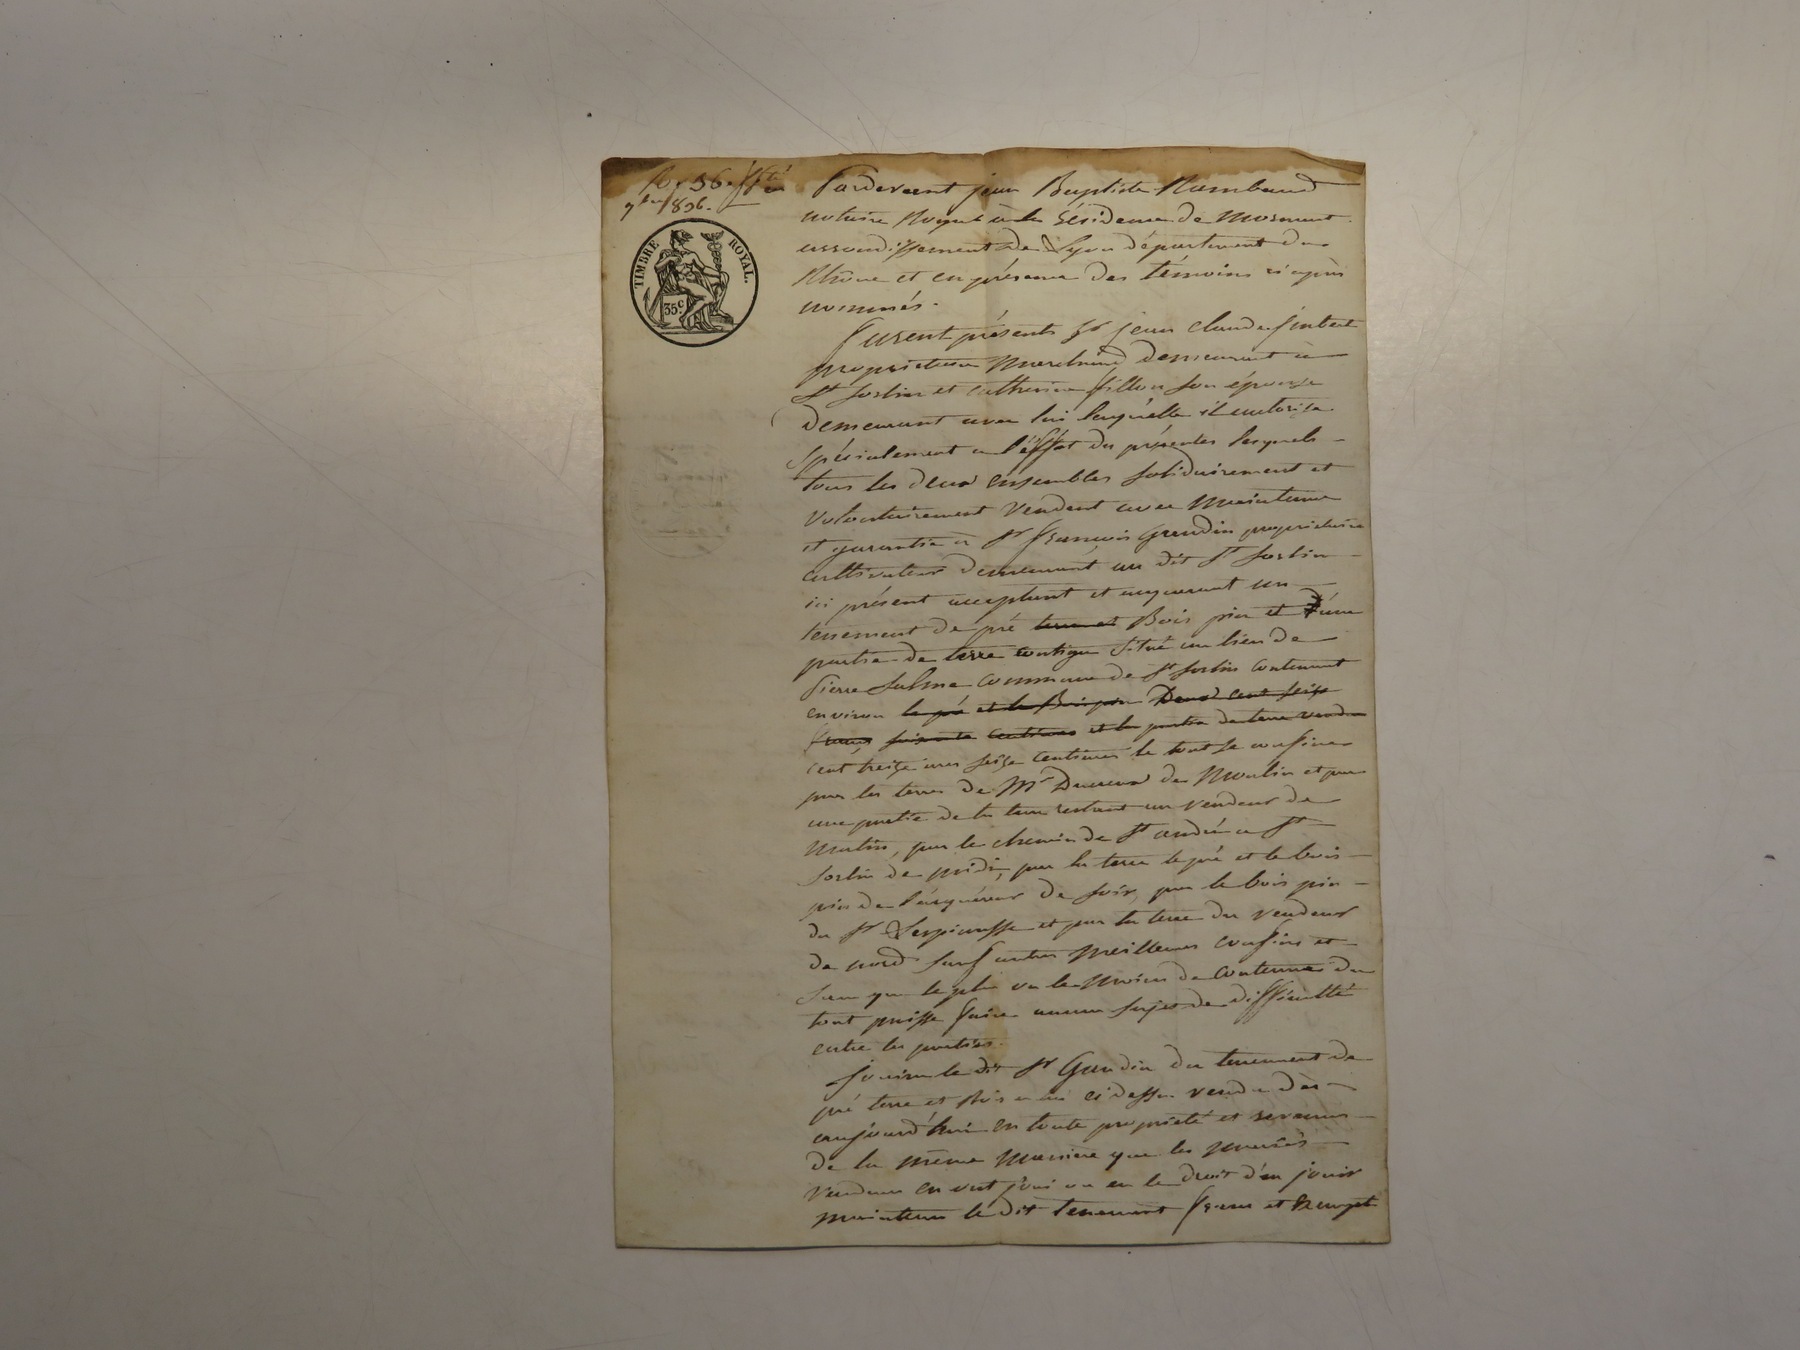 7bre 1836.
TIMBRE ROYAL.
35 c.
Pardevant jean Baptiste Rambaud
notaire Royal à la Résidence de Mornant
arrondissement de Lyon département du
Rhône et en présence des témoins ci après
nommés.
furent présents Sr jean Claude
propriétaire Marchand demeurant à
St Sorlin et catherine fillon son épouse
demeurant avec lui laquelle il autorise
spécialement a l'éffet des présentes lesquels
tous les deux ensembles solidairement et
volontairement vendent avec Maintenue
et garantie a Sr françois Gaudin propriétaire
cultivateur demeurant au dit St Sorlin
ici présent acceptant et acquerant un
tenement de pré terre et Bois pin et d'une
partie de terre contigue Situé au lieu de
commune de St Sorlin contenant
environ le pré et le Bois pin Deux cent seize
francs soixante centimes et la partie de terre vendue
cent treize ares seize centiares le tout se confine
par les terres de Mr du Moulin et par
une partie de la terre restant au vendeur de
Matin, par le chemin de St andré a St
Sorlin de midi, par la terre le pré et le bois
pin de l'acquéreur de soir, par le bois pin
du Sr Lespinasse et par la terre du vendeur
de nord sauf autres Meilleurs confins et
sans que le plus ou le Moins de contenue du
tout puisse faire aucun sujet de difficulté
entre les parties.
Jouira le dit Sr Gaudin du tenement de
pré terre et Bois a lui ci dessus vendu dès
aujourd'hui en toute propriété et revenus
de la même Manière que les
vendeurs en ont joui ou eu le droit d'en jouir
maintenu le dit tenement franc et Exempt